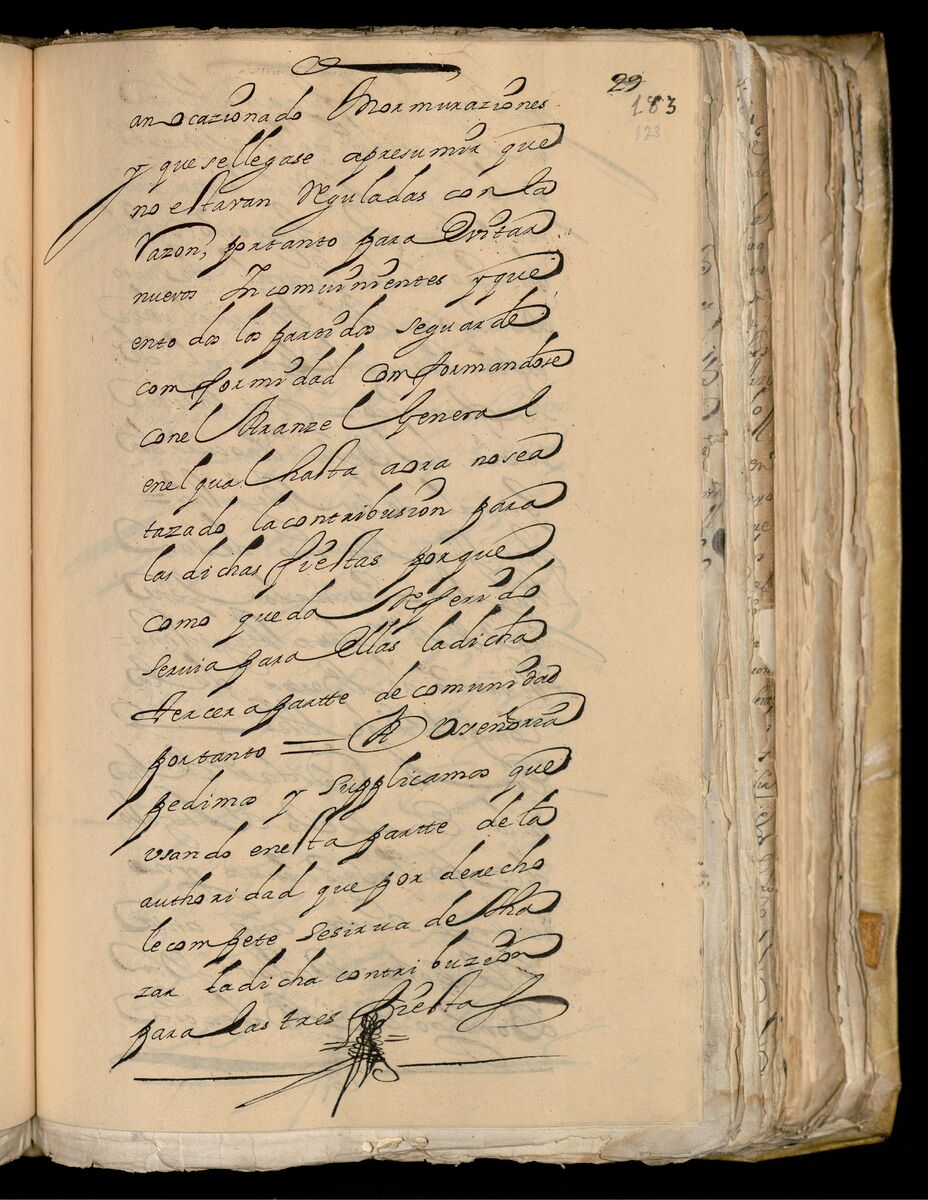 29
183
123
an ocazionado Mormuraziones
y que sellegase apresumir que
no estaran Reguladas con la
Razon, portanto para Evitar
nuevos Incomvinientes y que
ento dos los partidos seguarde
comformidad Comformandose
conel Aranzel General
enel qual hasta aora nosea
tazado lacontribusion para
las dichas fiestas porque
como queda Referido
servia para Ellas ladicha
tercera partte de comunidad
portanto = A Vseñoria
pedimos y supplicamos que
vsando enesta partte dela
authoridad que por derecho
lecompete sesirua de Tha
zar ladicha contribuzion
para las tres fiestas